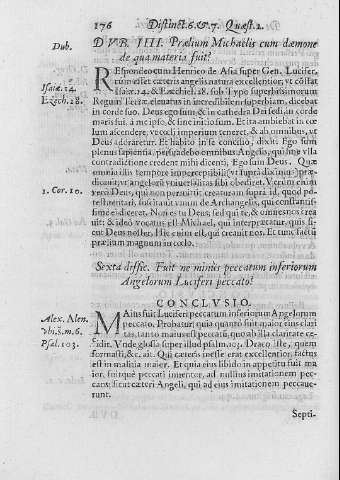 176 Distinct. 6. & 7. Quæst. 2.
Dub. DVB. IIII. Prælium Michaelis cum dæmone
de qua materia fuit?
REspondeo cum Henrico de Asia super Gen. Lucifer,
cum esset cæteris angelis natura excellentior, ut constat
Isaiæ. 14. Isaiæ 14. & Ezechiel. 28. sub Typo superbissimorum
Ezech. 28. Regum Terræ elevatus in incredibilem superbiam, dicebat
in corde suo. Deus ego sum, & in cathedra Dei sedi, in corde
maris
in cælum ascendero, ut cœli imperium teneret, & ab omnibus, ut
Deus adoraretur. Et habito in se concilio, dixit. Ego sum
plenus sapientia, persuadebo omnibus Angelis, qui sine ulla
contradictione credent mihi dicenti, Ego sum Deus. Quæ
omnia illi tempore imperceptibili (ut supra diximus) præ-
dicavit, ut angelorum universitas sibi obediret. Verum enim
1. Cor. 10. vero Deus, qui non permittit creaturam supra id, quod po-
test tentari, suscitavit unum de Archangelis, qui constantis-
sime ei diceret. Non es tu Deus, sed qui te, & omnes nos crea-
vit: & ideo vocatus est Michael, qui interpræatur, quis si-
cut Deus noster. Hic enim illi restitit. Et tunc factum
prælium magnum in cœlo.
Sexta diffic. Fuit ne minus peccatum inferiorum
Angelorum Luciferi peccato?
CONCLVSIO.
Alex. Alen. MAius fuit Luciferi peccatum inferiorum Angelorum
ubi. s. m. 6. peccato. Probatur, quia quanto fuit maior eius clari
Psal. 103. tas, tanto maius est peccati, quo ab illa claritate ce-
cidit. Unde glossa super illud psalm. 103. Draco iste, quem
formasti, & c. ait. Qui cæteris in esse erat excellentior, factus
est in malitia maior. Et quia eius libido in appetitu fuit ma
ior, fuitque peccati inventor, & ad eius imitationem pec-
cavit cæteri Angeli, qui ad eius imitationem peccave-
runt.
Septi-